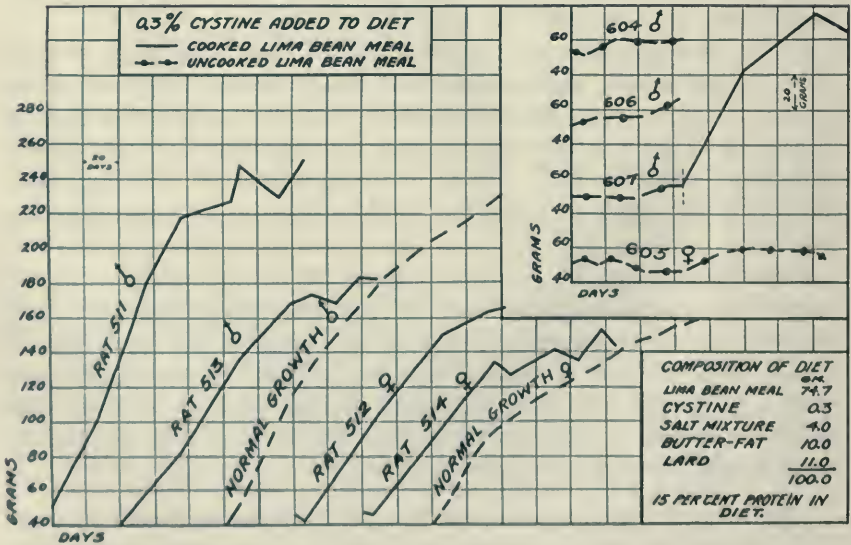 0.3% CYSTINE ADDED TO DIET
COOKED LIMA BEAN MEAL
UNCOOKED LIMA BEAN MEAL
280
260
240
220
200
180
160
140
120
100
80
60
40
GRAMS
DAYS
20
DAYS
RAT 511 ♂
RAT 513 ♂
NORMAL GROWTH ♂
RAT 512 ♀
RAT 514 ♀
NORMAL GROWTH ♀
60
40
60
40
60
40
60
40
GRAMS
DAYS
604 ♂
606 ♂
607 ♂
605 ♀
20
GRAMS
COMPOSITION OF DIET
GM.
LIMA BEAN MEAL 74.7
CYSTINE 0.3
SALT MIXTURE 4.0
BUTTER-FAT 10.0
LARD 11.0
100.0
15 PERCENT PROTEIN IN
DIET.